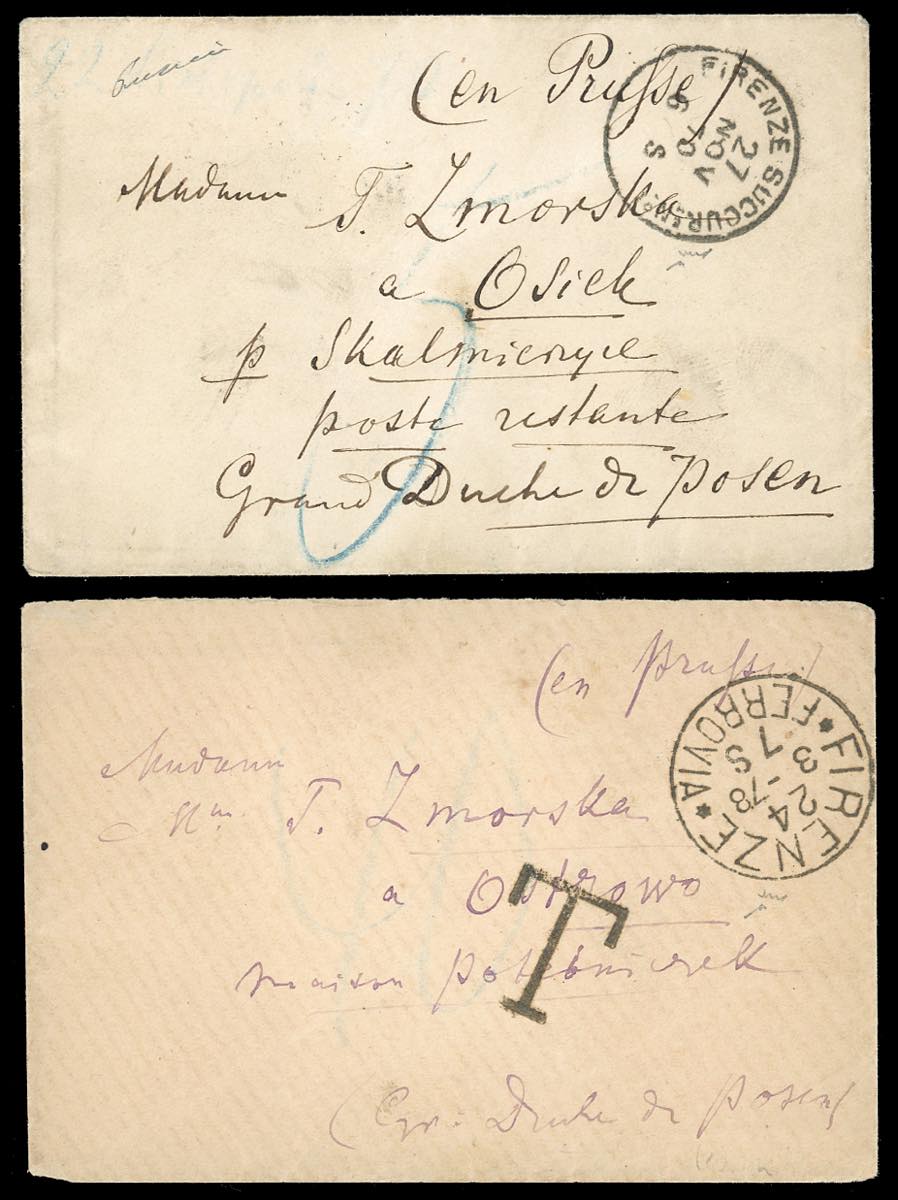 (en Prusse)
FIRENZE SUCCURS
6
27
NOV
S
Madame
T. Zmorska
a Osiek
p Skalmierzyce
poste restante
Grand Duche de Posen
(en Prusse)
FIRENZE
* FERROVIA *
7 S
3
2
-78
24
Madame
T. Zmorska
a Ostrowo
T
maison
(Gr: Duche de Posen)